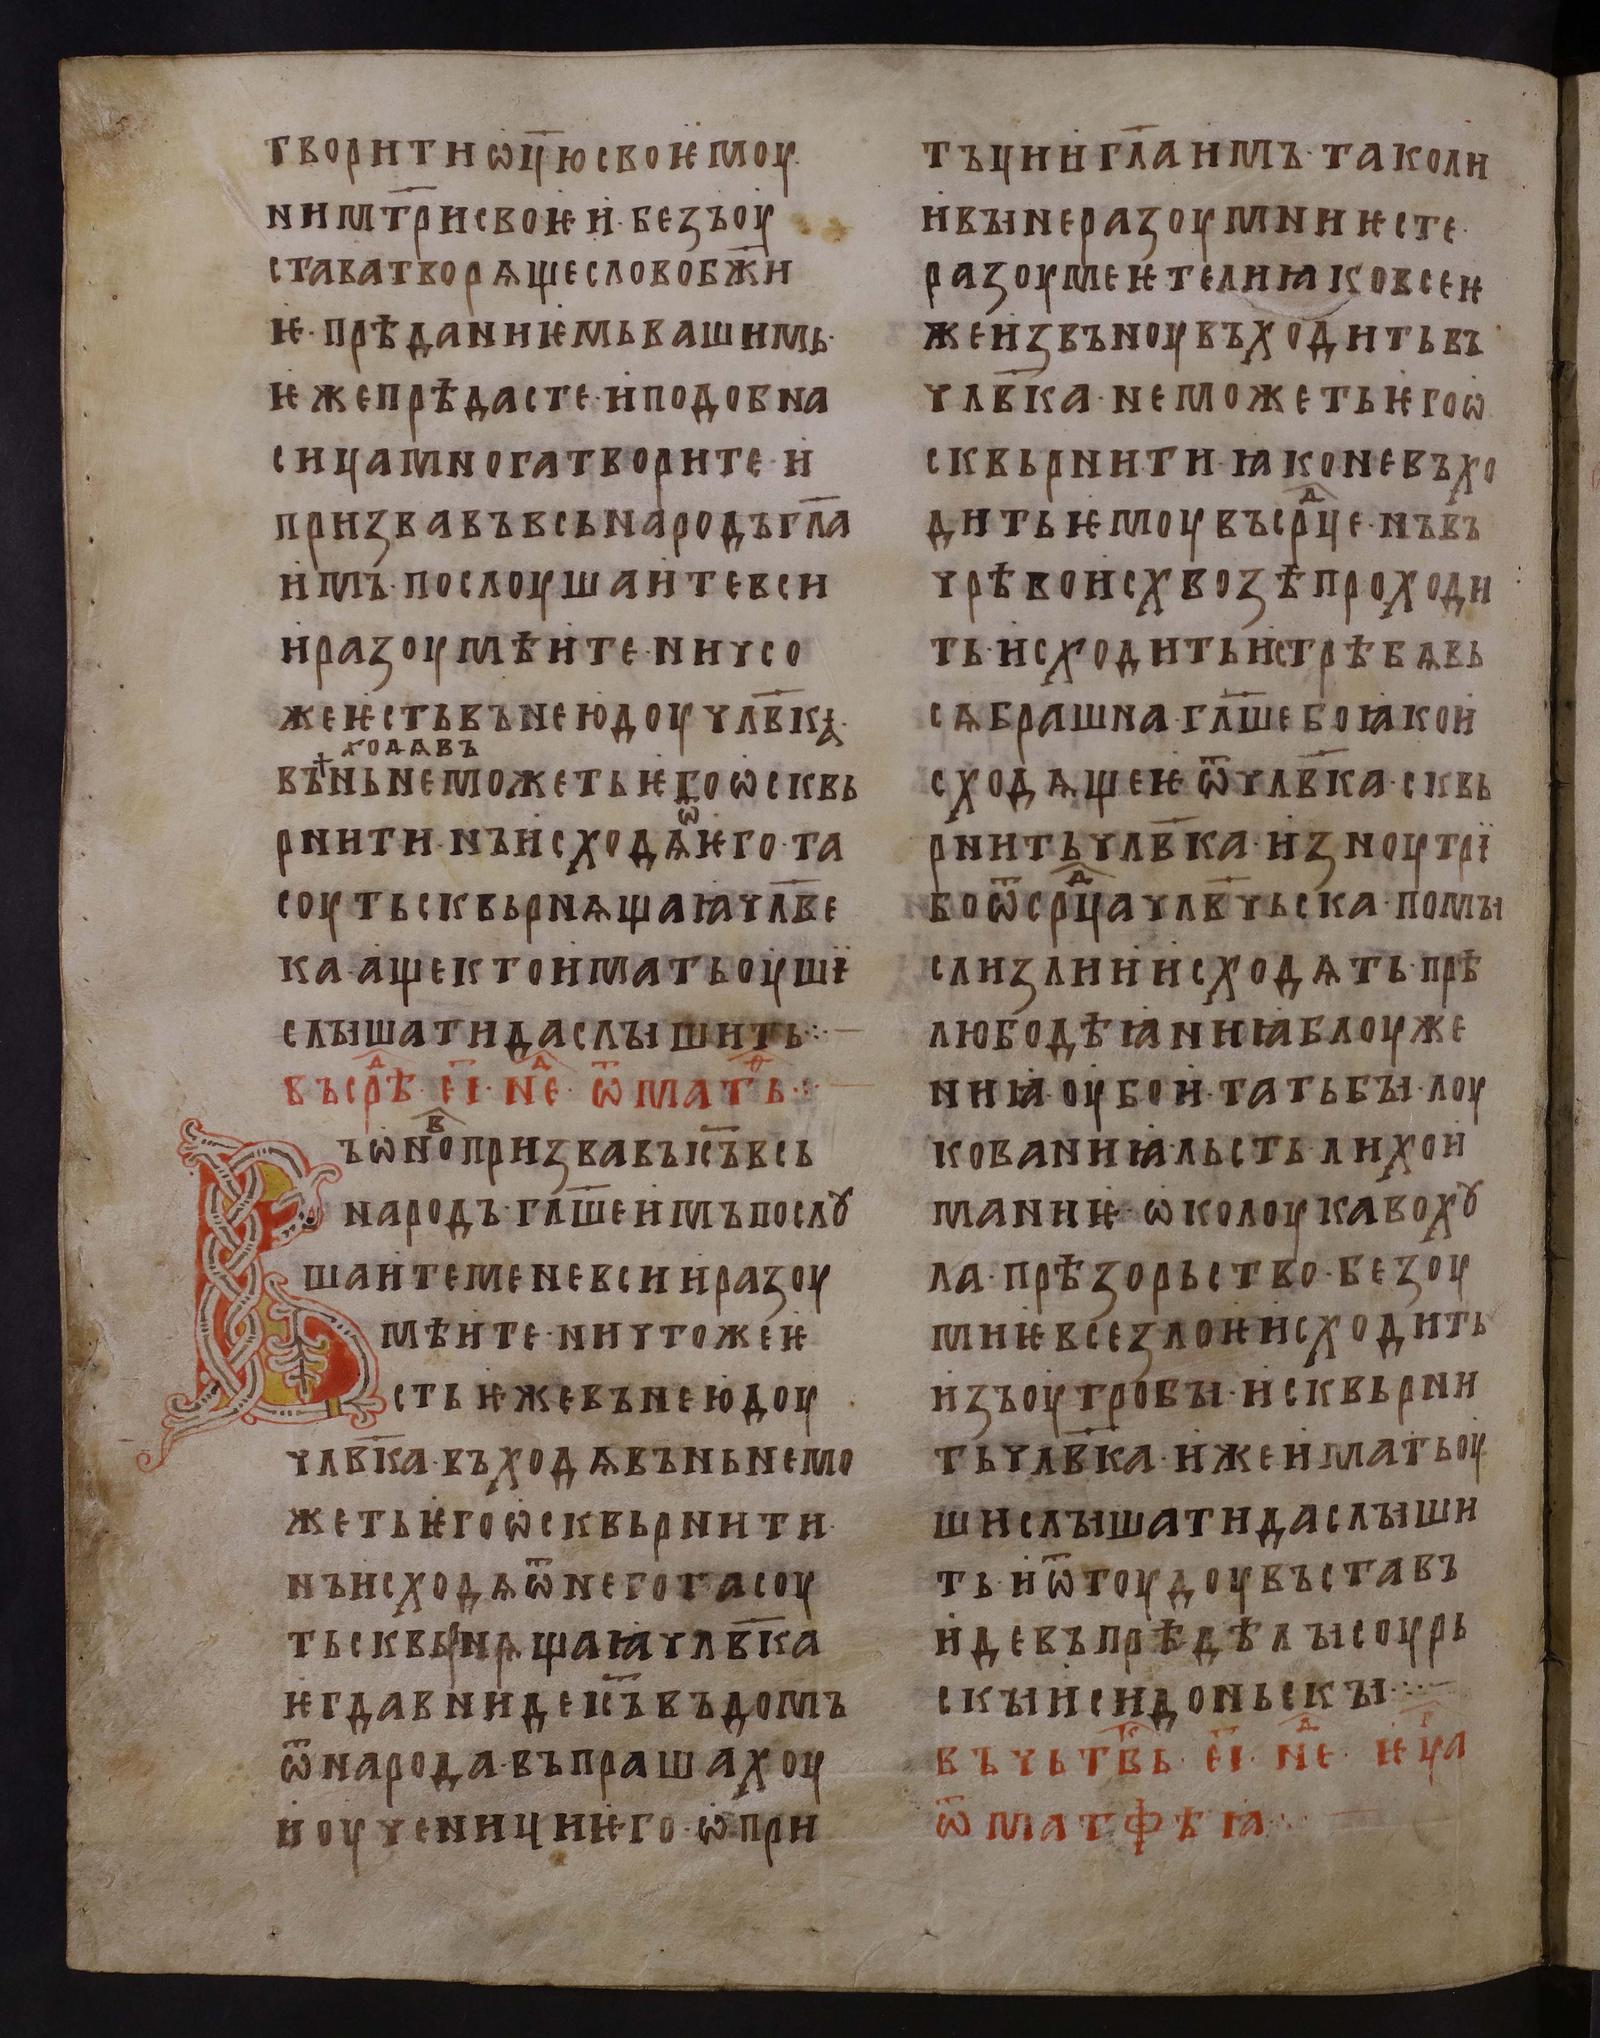 творитиѡц҃юсвоѥмоу·
нимт҃рисвоѥи·безъоу
ставатворѧщесловобж҃и
ѥ·прѣданиѥмьвашимь·
ѥжепрѣдасте·иподобна
сицамноготворите·и
призвавъвсьнародъгл҃а
имъ·послоушаитевси
иразоумѣите·ничсо
жеѥстьвънеюдоучл҃вкꙗ·
ходѧвъ
вън҄ьнеможетьѥгоѡсквь
рнити·нъисходѧѿнѥго·та
соутьсквьрнѧщаꙗчл҃ве
ка·ащектоиматьоушї
слышатидаслышить·:·—
въсрⷣѣ·е҃і·неⷣ·ѿматⷴь·:·
ъѡновⷡпризвавъіс҃ъвсь
народъ·гл҃шеимъпослꙋ
шаитеменевсииразоу
мѣите·ничтожеѥ
стьѥжевънеюдоу
чл҃вка·въходѧвъньнемо
жетьѥгоѡсквьрнити·
нъисходѧѿнеготасоу
тьсквьрнѧщаꙗчл҃вка
ѥгдавнидеіс҃ъвъдомъ
ѿнарода·въпрашахоу
иоученициѥго·ѡпри
тъциигл҃аимъ·таколи
ивынеразоумниѥсте·
разоумеѥтелиꙗковсеѥ
жеизвъноувъходитьвъ
чл҃вка·неможетьѥгоѡ
сквьрнити·ꙗконевъхо
дитьѥмоувъсрⷣце·нъвъ
чрѣвоисхвозѣпроходи
ть·исходитьистрѣбѧвь
сѧбрашна·гл҃шебоꙗкои
сходѧщеѥѿчл҃вка·сквь
рнитьчл҃вка·изноутрї
боѿсрⷣцачл҃вчьска·помы
слизлииисходѧть·прѣ
любодѣꙗниꙗблоуже
ниꙗ·оубои·татьбы·лоу
кованиꙗ·льсть·лихои
маниѥ·ѡколоукавохꙋ
ла·прѣзорьство·безоу
мнѥвсезлоѥисходить
изъоутробы·исквьрни
тьчл҃вка·ижеиматьоу
шислышатидаслыши
ть·иѿтоудоувъставъ
идевъпрѣдѣлысоурь
скыисидоньскы·:·—
въчьтвⷦ҇ь·е҃і·неⷣ·ѥцⷢ҇л
ѿматфѣꙗ·:·—